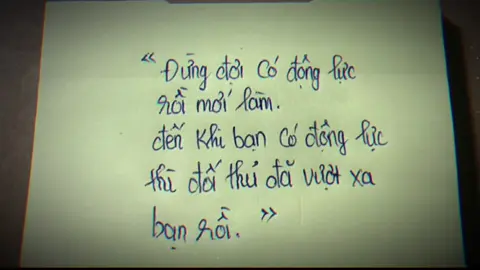 “ Đừng đợi có động lực
rồi mới làm.
đến khi bạn có động lực
thì đối thủ đã vượt xa
bạn rồi. ”